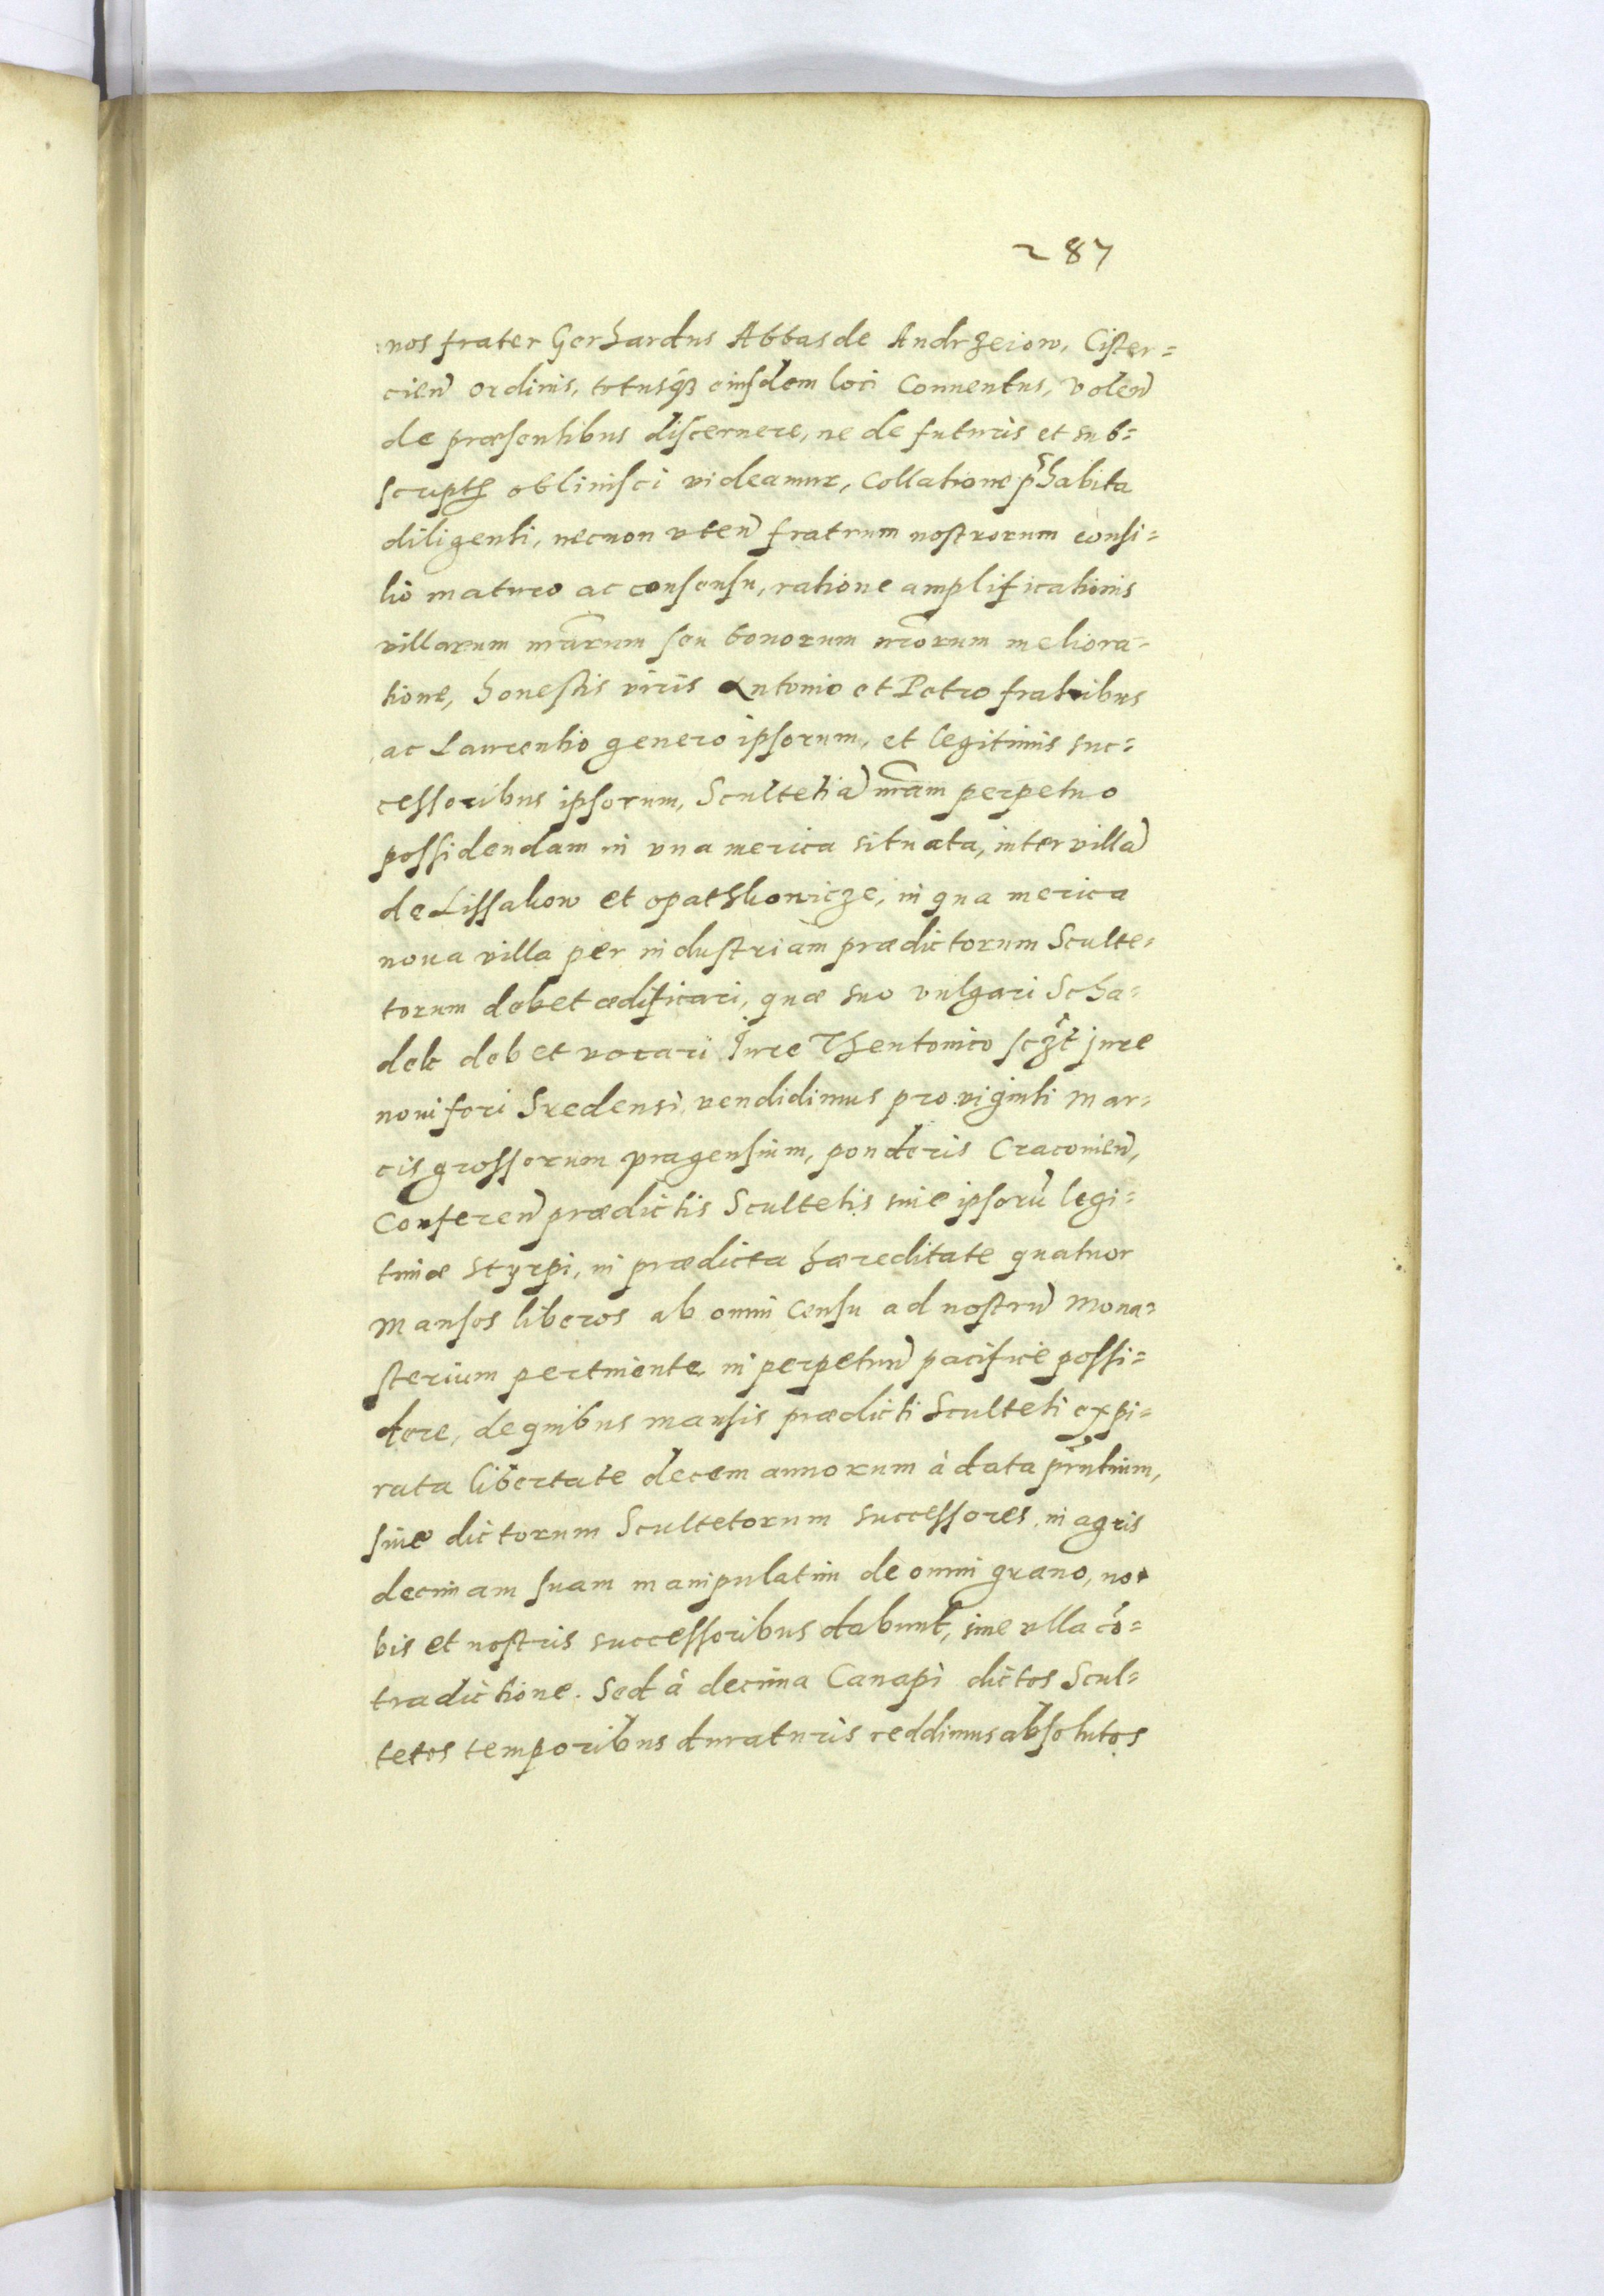 287
nos frater Gerhardus Abbas de Andrzeiow, Cister=
cien̄ ordinis, totusq́ꝫ eiusdem loci Conuentus, volen̄
de præsentibus discernere, ne de futuris et sub=
scriptis obliuisci videamur, Collatione p̃habita
diligenti, necnon vten̄ fratrum nostrorum consi=
lio maturo ac consensu, ratione amplificationis
villarum nr̄arum seu bonorum nr̄orum meliora=
tione, honestis viris Antonio et Petro fratribus
ac Laurentio genero ipsorum, et legitimis suc=
cessoribus ipsorum, Scultetiā nr̄am perpetuo
possidendam in vna merica situata, inter villā
de Lissakow et opatskowicze, in qua merica
noua villa per industriam prædictorum Sculte=
torum debet ædificari, quæ suo vulgari Scha=
dek debet vocari Jure Theutonico scꝫt jure
noui fori Sredensi, vendidimus pro viginti mar=
cis grossorum pragensium, ponderis Cracouien̄,
Conferen̄ prædictis Scultetis siue ipsorū legi=
timæ styrpi, in prædicta hæreditate quatuor
mansos liberos ab omni censu ad nostrū Mona=
sterium pertinente in perpetuū pacifice possi=
dere, de quibus mansis prædicti Sculteti expi=
rata libertate decem annorum à data pr̄ntium,
siue dictorum Scultetorum successores in agris
decimam suam manipulatim de omni grano, no=
bis et nostris successoribus dabunt, sine vlla cō=
tradictione. Sed à decima Canapi dictos Scul=
tetos temporibus duraturis reddimus absolutos